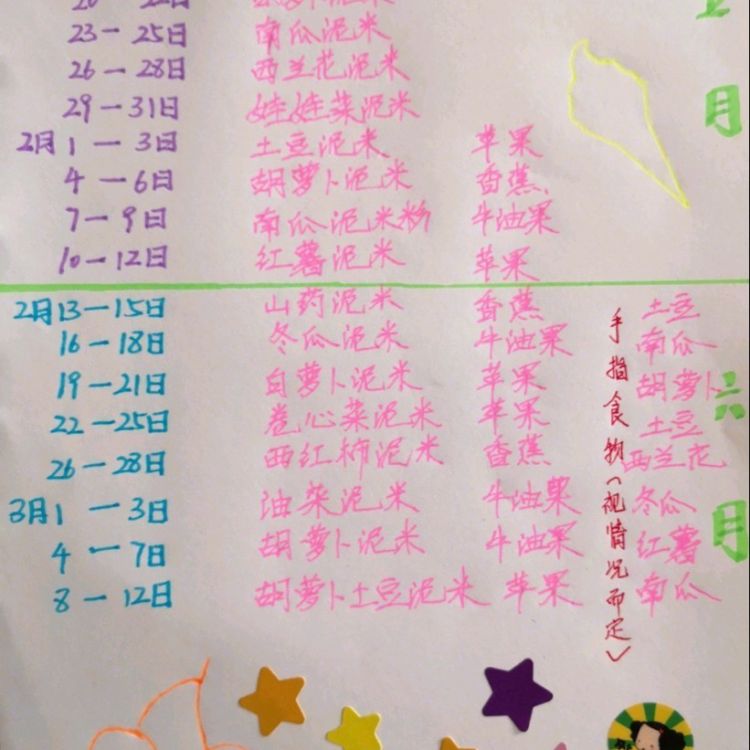 23－25日 南瓜泥米
26－28日 西兰花泥米
29－31日 娃娃菜泥米
2月1－3日 土豆泥米 苹果
4－6日 胡萝卜泥米 香蕉
7－9日 南瓜泥米粉 牛油果
10－12日 红薯泥米 苹果
月
2月13－15日 山药泥米 香蕉 土豆
16－18日 冬瓜泥米 牛油果 南瓜
19－21日 白萝卜泥米 苹果 胡萝卜
22－25日 卷心菜泥米 苹果 土豆
26－28日 西红柿泥米 香蕉 西兰花
3月1－3日 油菜泥米 牛油果 冬瓜
4－7日 胡萝卜泥米 牛油果 红薯
8－12日 胡萝卜土豆泥米 苹果 南瓜
手指食物（视情况而定）
六月